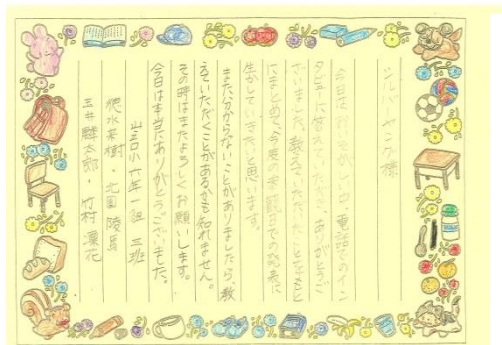 シルバーヤング様
今日は、おいそがしい中、電話でのイン
タビューに答えていただいて、ありがとうご
ざいました。教えていただいたことをもと
にまとめ、今度の参観日での発表に
生かしていきたいと思います。
また分からないことがありましたら、教
えていただくことがあるかも知れません。
その時はまたよろしくお願いします。
今日は本当にありがとうございました。
山口小六年一組 三班
希樹・北国 陵馬
玉井 太郎・竹村 凜花